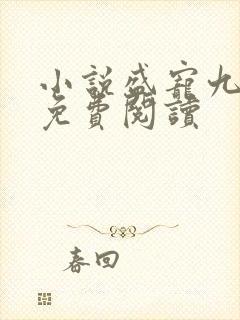 小說盛寵九
免費閱讀
春回